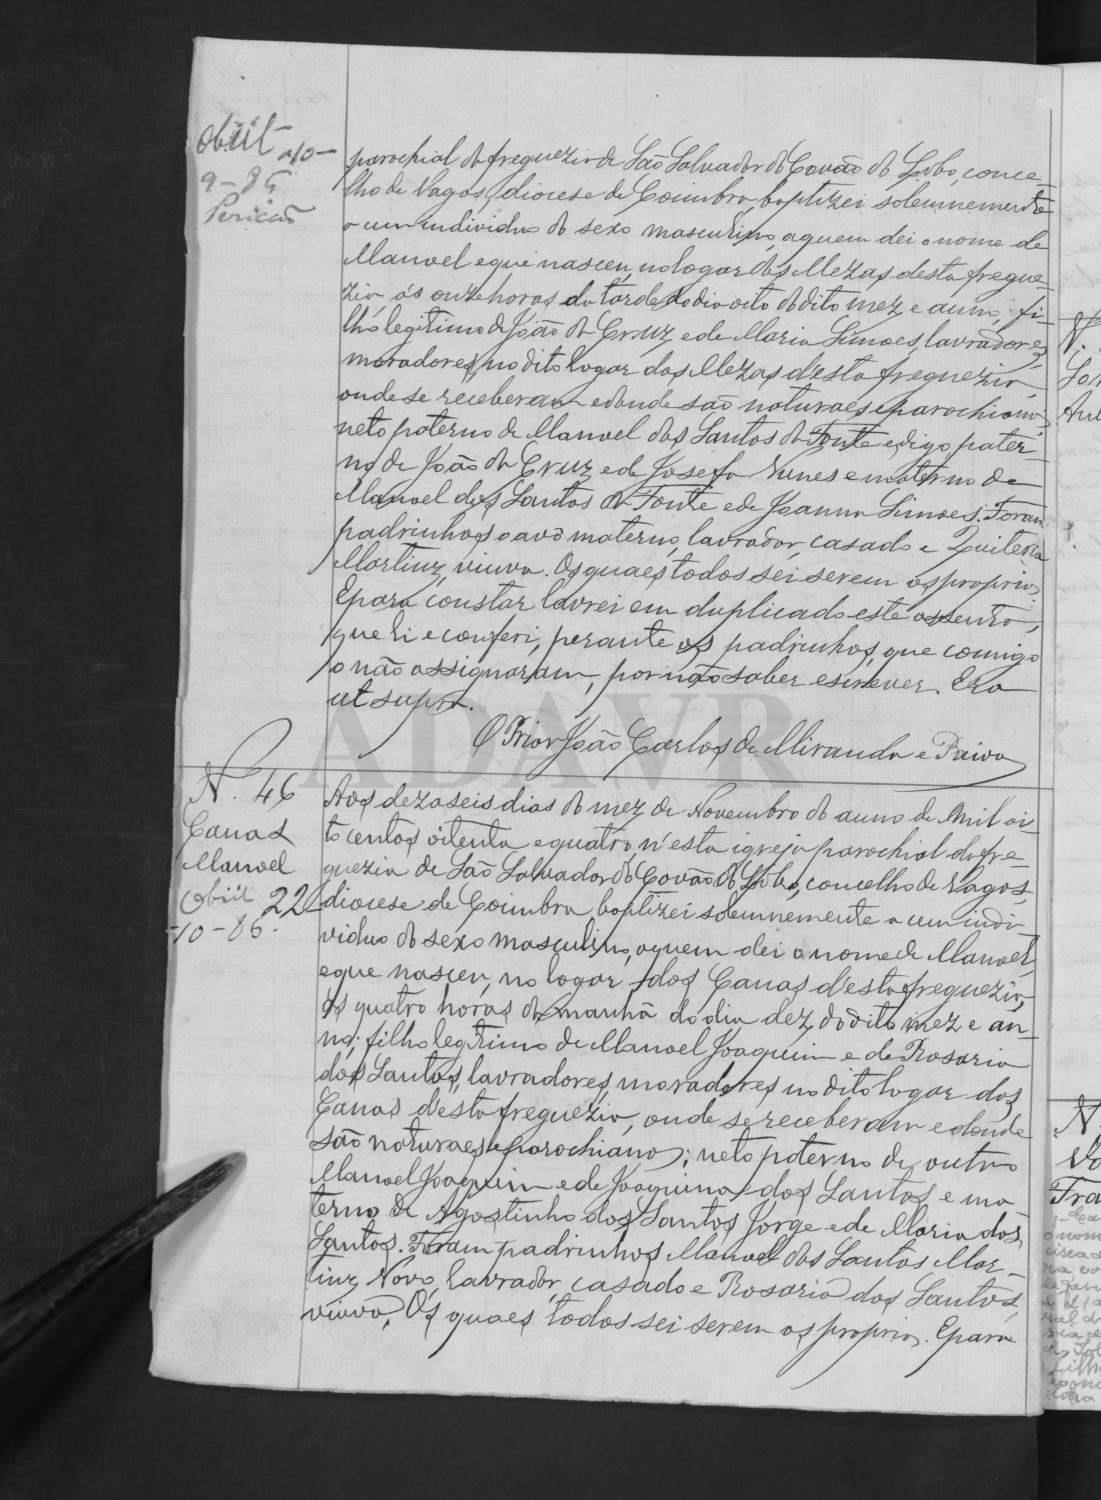 Obiit 10-
9-85
Pericão
parochial da freguezia de São Salvador do Covão do Lobo, conce-
lho de Vagos, diocese de Coimbra, baptizei solemnemente
a um individuo do sexo masculino, aquem dei o nome de
Manoel e que nasceu, no logar das Mezas desta fregue-
zia, ás onze horas da tarde do dia oito do dito mez e anno, fi-
lho legitimo de João da Cruz e de Maria Simoes, lavradores,
moradores, no dito logar das Mezas d'esta freguezia,
onde se receberam e donde são naturaes e parochianos,
neto paterno de Manoel dos Santos da Fonte e digo pater-
no de João da Cruz e de Josefa Nunes e materno de
Manoel dos Santos da Fonte e de Joanna Simoes. Foram
padrinhos o avô materno, lavrador, casado e Quiteria
Martinz, viuva. Os quaes todos sei serem os proprios.
E para constar lavrei em duplicado este assento,
que li e conferi, perante os padrinhos, que comigo
o não assignaram, por não saber escrever. Era
ut supra.
O Prior João Carlos de Miranda e Paiva
N. 46
Canas
Manoel
Obiit 22-
10-86.
Aos dezaseis dias do mez de Novembro do anno de mil oi-
to centos oitenta e quatro, n'esta igreja parochial da fre-
guezia de São Salvador do Covão do Lobo, concelho de Vagos,
diocese de Coimbra baptizei solemnemente a um indi-
viduo do sexo masculino, aquem dei o nome de Manoel,
e que nasceu, no logar dos Canas d'esta freguezia,
ás quatro horas da manhã do dia dez, do dito mez e an-
no; filho legitimo de Manoel Joaquim e de Rosaria
dos Santos, lavradores, moradores no dito logar dos
Canas d'esta freguezia, onde se receberam e donde
são naturaes e parochianos; neto paterno de outro
Manoel Joaquim e de Joaquina dos Santos e ma-
terno de Agostinho dos Santos Jorge e de Maria dos
Santos. Foram padrinhos Manoel dos Santos Mar-
tinz Novo, lavrador, casado e Rosaria dos Santos,
viuva. Os quaes todos sei serem os proprios. E para
N.
N.
Fra
ADAVR